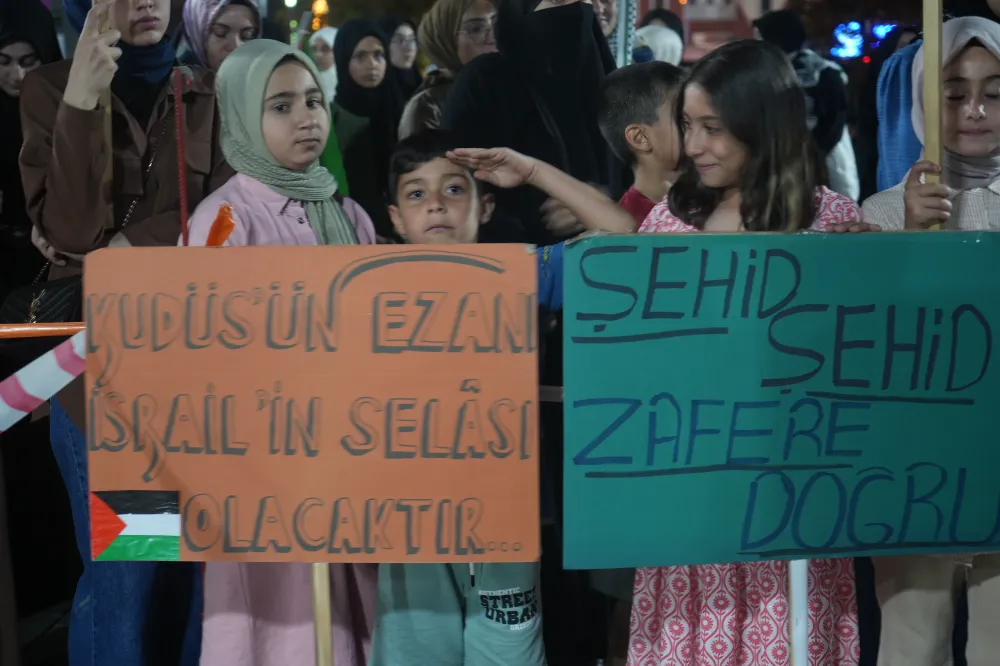 KUDÜS'ÜN EZANI
İSRAİL'İN SELÂSI
OLACAKTIR...
ŞEHİD
ŞEHİD
ZAFERE
DOĞRU
STREET
URBAN